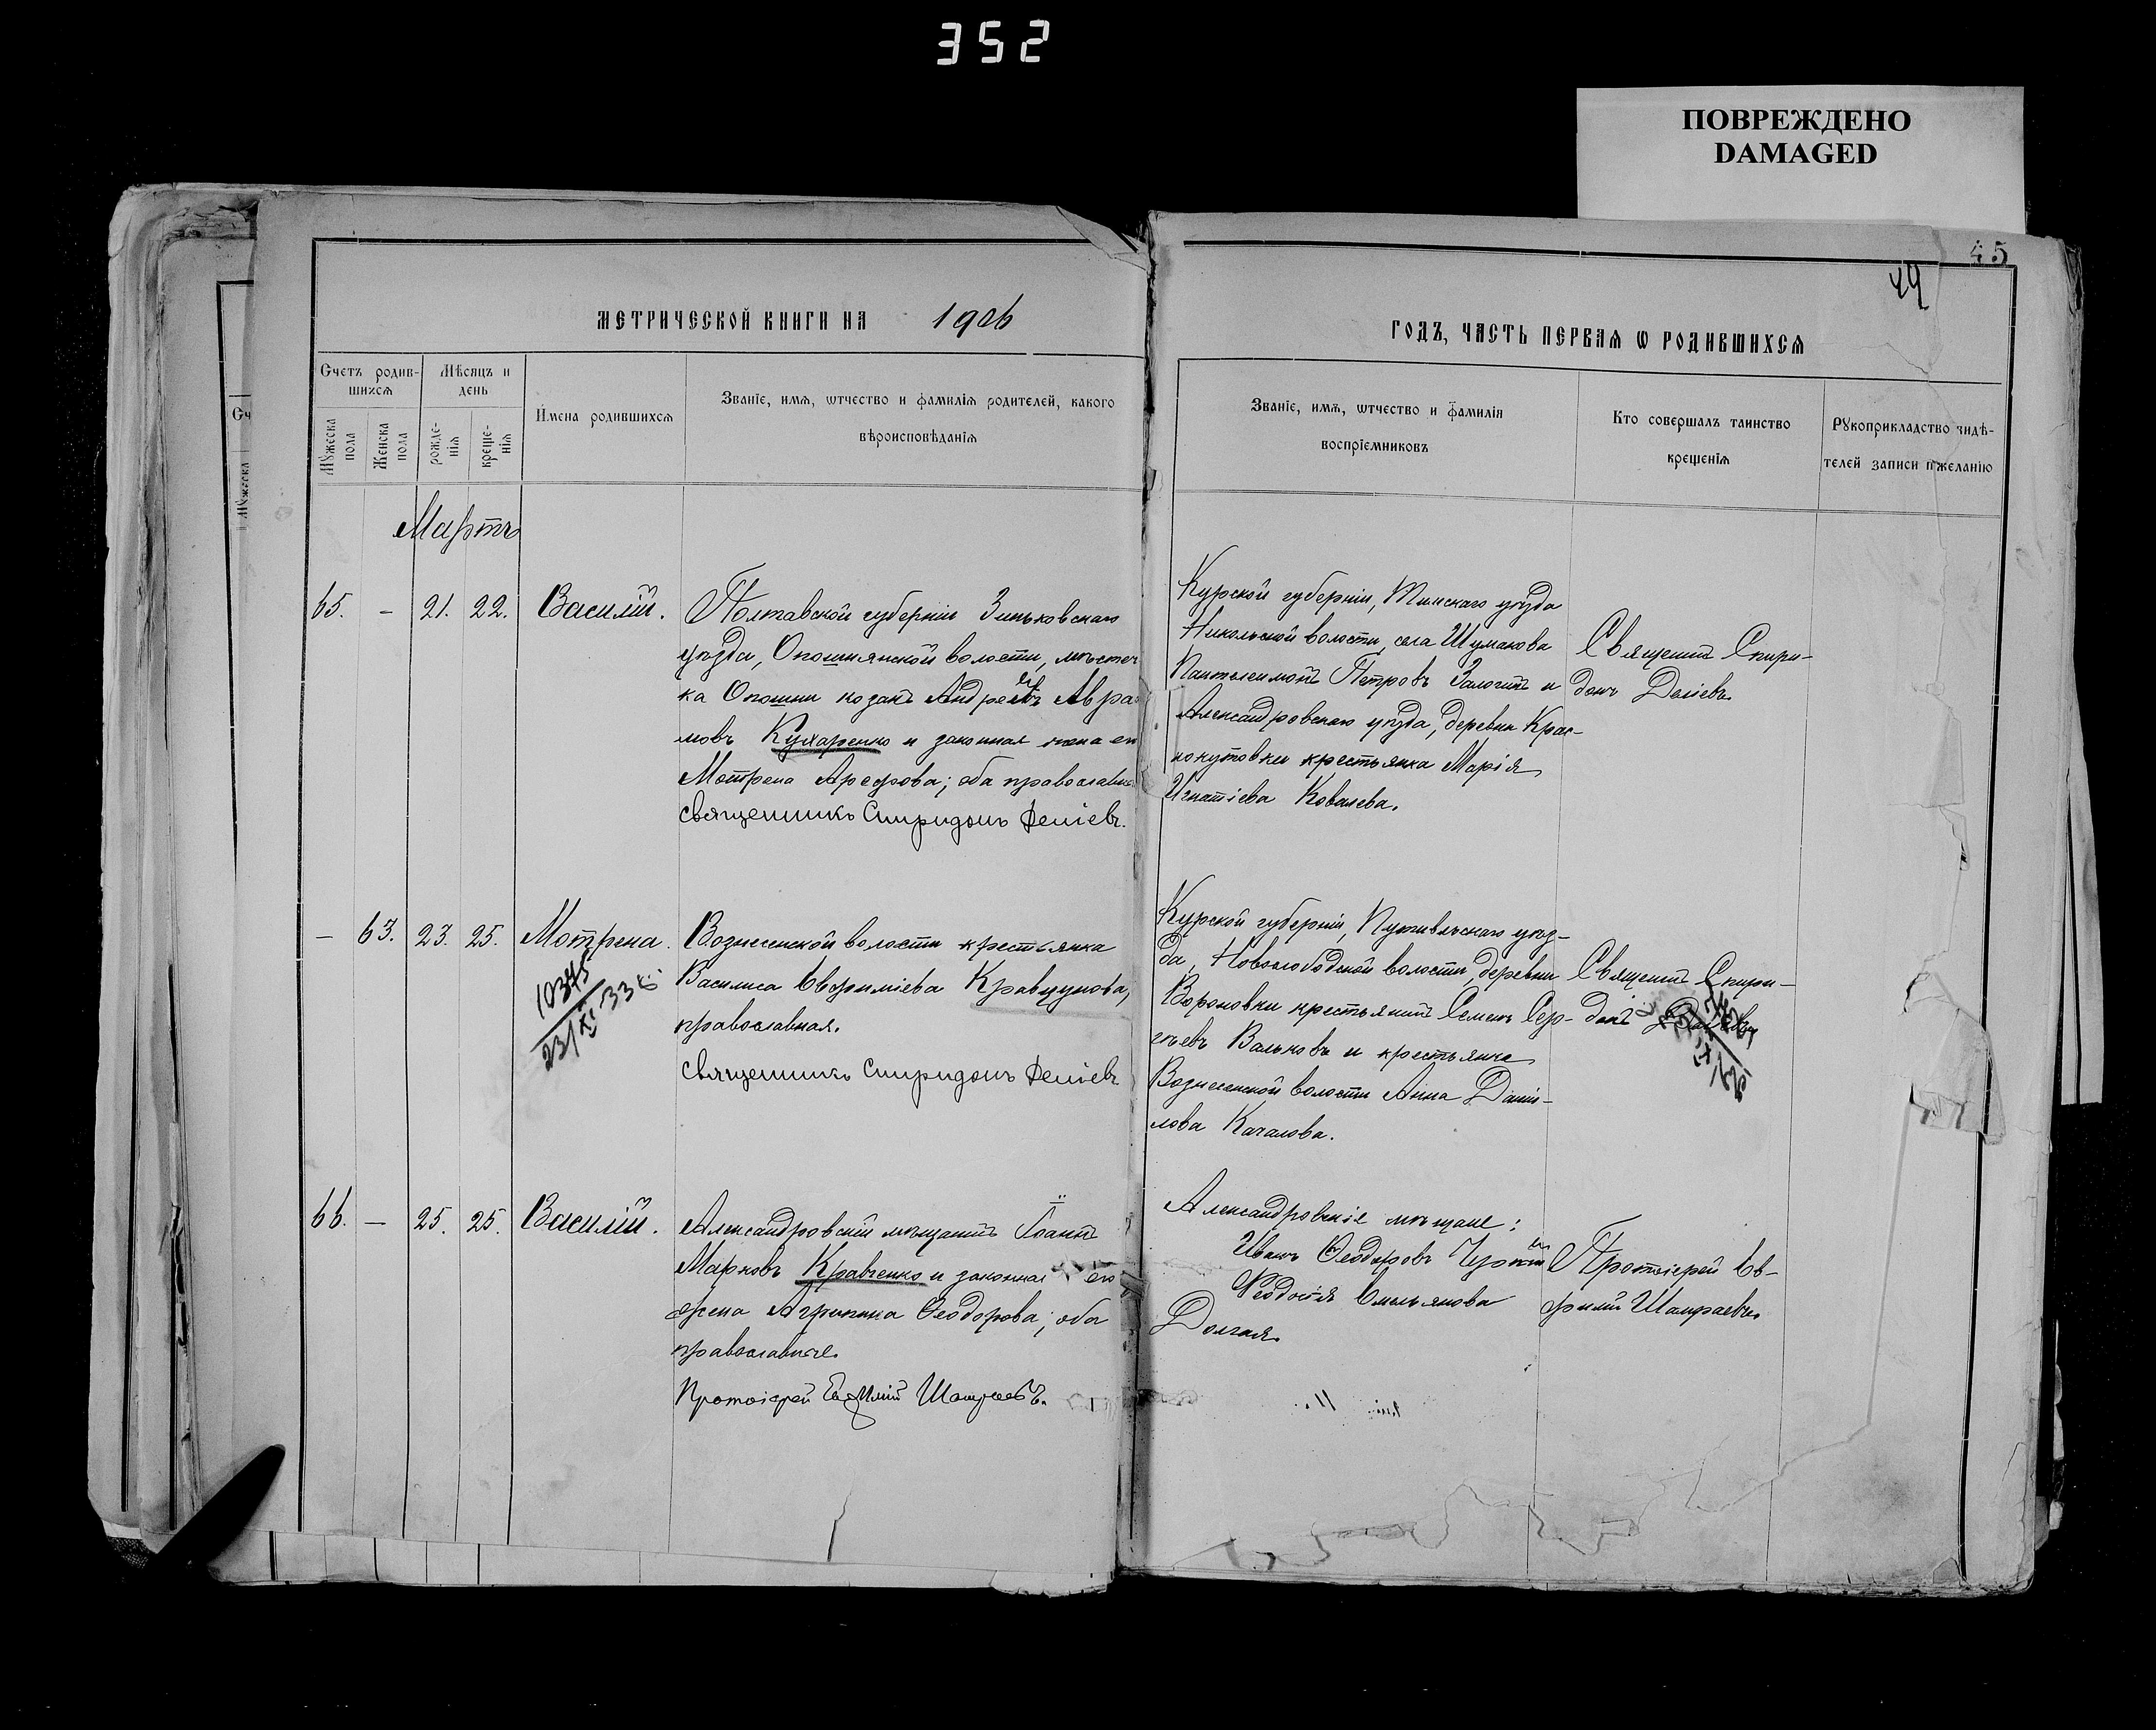 352
ПОВРЕЖДЕНО
DAMAGED
45
44
МЕТРИЧЕСКОЙ КНИГИ НА 1906
ГОДЪ, ЧАСТЬ ПЕРВАѦ Ѡ РОДИВШИХСѦ
Счетъ родив-
шихсѧ
Мѣсяцъ и
день
Мужеска
пола
Женска
пола
рожде-
нїѧ
креще-
нїѧ
Имена родившихсѧ
Званїе, имѧ, ѡтчество и фамилїѧ родителей, какого
вѣроисповѣданїѧ
Званїе, имѧ, ѡтчество и фамилїѧ
воспрїемниковъ
Кто совершалъ таинство
крещенїѧ
Рукоприкладство свидѣ-
телей записи по желанїю
Мартъ
65. – 21. 22. Василій.
Полтавской губерніи Зиньковскаго
уѣзда, Опошнянской волости, мѣстеч
ка Опошни козакъ Андрей Авра
мовъ Кухаренко и законная жена его
Мотрена Арефова; оба православн
Священникъ Спиридонъ Деліевъ.
Курской губерніи, Тимскаго уѣзда
Никольской волости, села Шумакова
Пантелеимонъ Петровъ Залогинъ и
Александровскаго уѣзда, деревни Крас-
нокутовки крестьянка Марія
Игнатіева Ковалева.
Священникъ Спири-
донъ Деліевъ.
– 63. 23. 25. Мотрена.
10345
23/XI 33
Вознесенской волости крестьянка
Василиса Евфиміева Кравцунова,
православная.
Священникъ Спиридонъ Деліевъ
Курской губерніи, Путивльскаго уѣз-
да, Новослободской волости, деревни
Вороновки крестьянинъ Семенъ Сер-
гѣевъ Вальковъ и крестьянка
Вознесенской волости Анна Дани-
лова Качалова.
Священникъ Спири-
донъ Деліевъ
66. – 25. 25. Василій.
Александровскій мѣщанинъ Іоаннъ
Марковъ Кравченко и законная его
жена Агрипина Ѳеодорова; оба
православные.
Протоіерей Евфимій Шамраевъ.
Александровскіе мѣщане:
Иванъ Ѳеодоровъ
Ѳеодосія Емельянова
Долгая.
Протоіерей Ев-
фимій Шамраевъ.